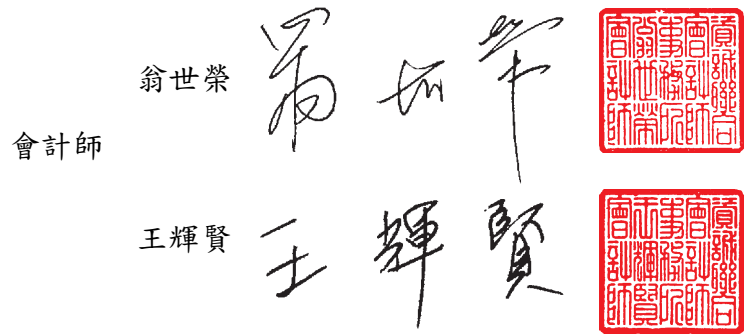 翁世榮 翁世榮
資誠聯合
會計師
事務所
翁世榮
會計師
會計師
王輝賢 王輝賢
資誠聯合
會計師
事務所
王輝賢
會計師